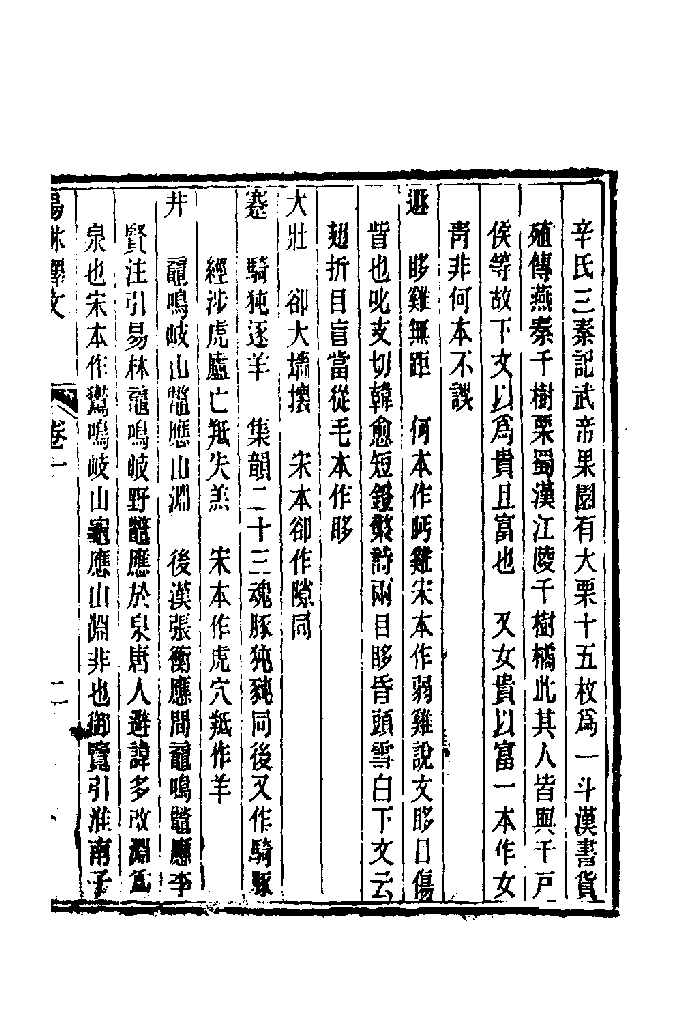 辛氏三秦記武帝果園有大栗十五枚爲一斗漢書貨
殖傳燕秦千樹栗蜀漢江陵千樹橘此其人皆與千戸
侯等故下文以爲貴且富也　又女貴以富一本作女
靑非何本不誤
遯　眵雞無距　何本作眄雞宋本作弱雞說文眵目傷
眥也叱支切韓愈短鐙檠詩兩目眵昏頭雪白下文云
翅折目盲當從毛本作眵
大壯　卻大墻壞　宋本卻作隙同
蹇　騎㹠逐羊　集韻二十三魂豚㹠豘同後又作騎豚
經涉虎廬亡羝失羔　宋本作虎穴羝作羊
井　黿鳴岐山鼈應山淵　後漢張衡應間黿鳴鼈應李
賢注引易林黿鳴岐野鼈應於泉唐人避諱多改淵爲
泉也宋本作鸑鳴岐山龜應山淵非也御覽引淮南子
易林釋文
卷一
二